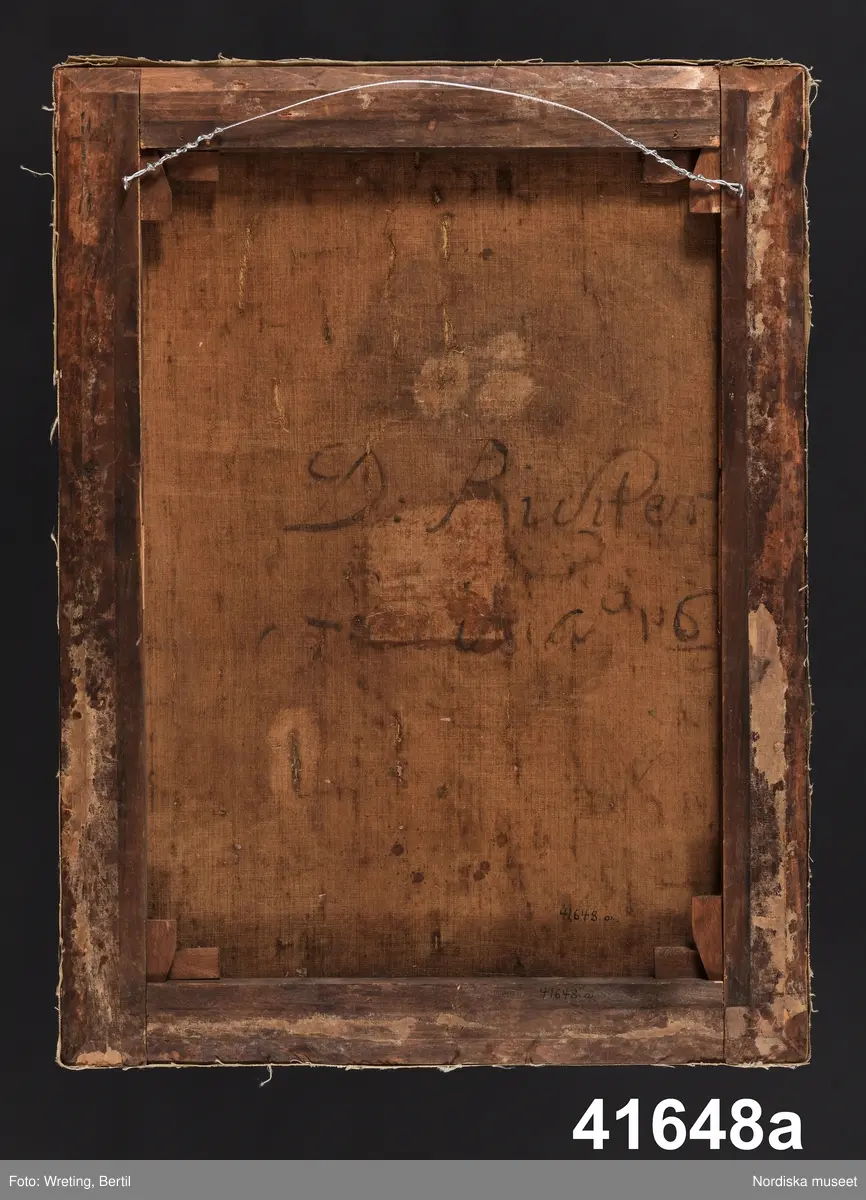 D. Richter
41648 a.
41648 a.
41648a
Foto: Wreting, Bertil
Nordiska museet